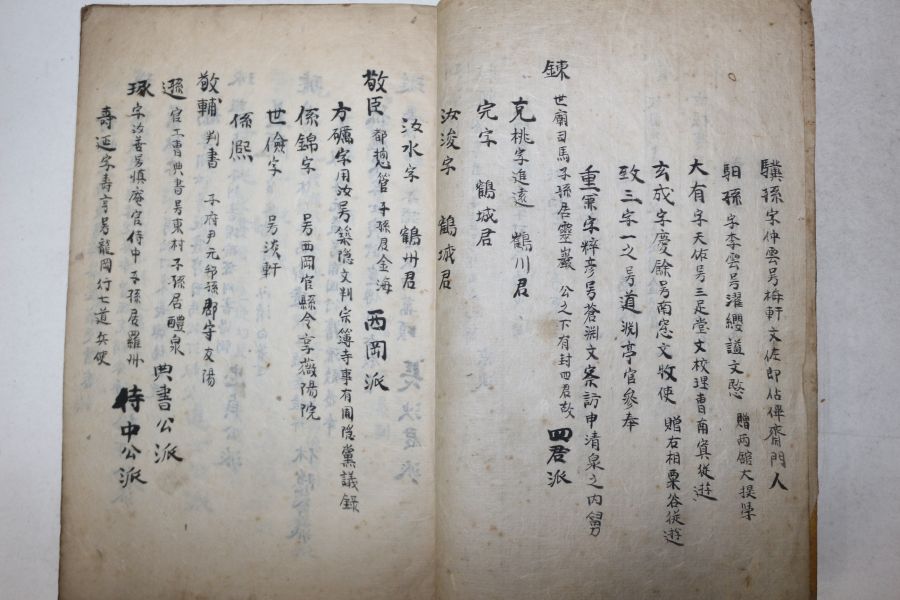 驥孫 字仲雲号梅軒文佐郎佔僤齋門人
馹孫 字季雲号濯纓謚文愍 贈両館大提學
大有 字天佑号三足堂文校理曺南冥從遊
玄成 字慶餘号南窓文牧使 贈右相栗谷從遊
致三 字一之号道淵亭官參奉
重 字粹彦号蒼淵文 訪申清泉之内舅
鍊 世廟司馬子孫居靈巖 公之下有封四君故 四君派
克桃 字進遠 鶴川君
完 字 鶴城君
汝浚 字 鶴城君
汝水 字 鶴州君
敬臣 都摠管 子孫居金海 西岡派
方礪 字用汝号築隠文判宗簿寺事有圃隠黨議錄
係錦 字 号西岡官縣令享薇陽院
世儉 字 号淡軒
係熈
敬輔 判書 子府尹元 孫郡守友陽
遜 官工曹典書号東村子孫居醴泉 典書公派
琢 字汝善号愼庵官侍中子孫居羅州 侍中公派
壽延 字壽亨号龍岡行七道兵使